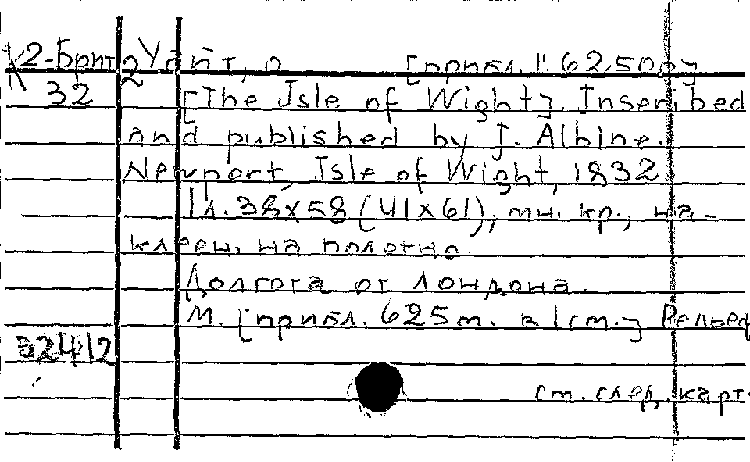 К2-Брит 2 Уайт, о [прибл. 1:62500]
32 [The Isle of Wight]. Inscribed
and published by J. Albine.
Newport, Isle of Wight, 1832
1 л. 38x58 (41x61), мн. кр., на-
клеен. на полотно
Долгота от Лондона.
М. [прибл. 625 м. в 1 см.] Рельеф
32412
см. след. карт.